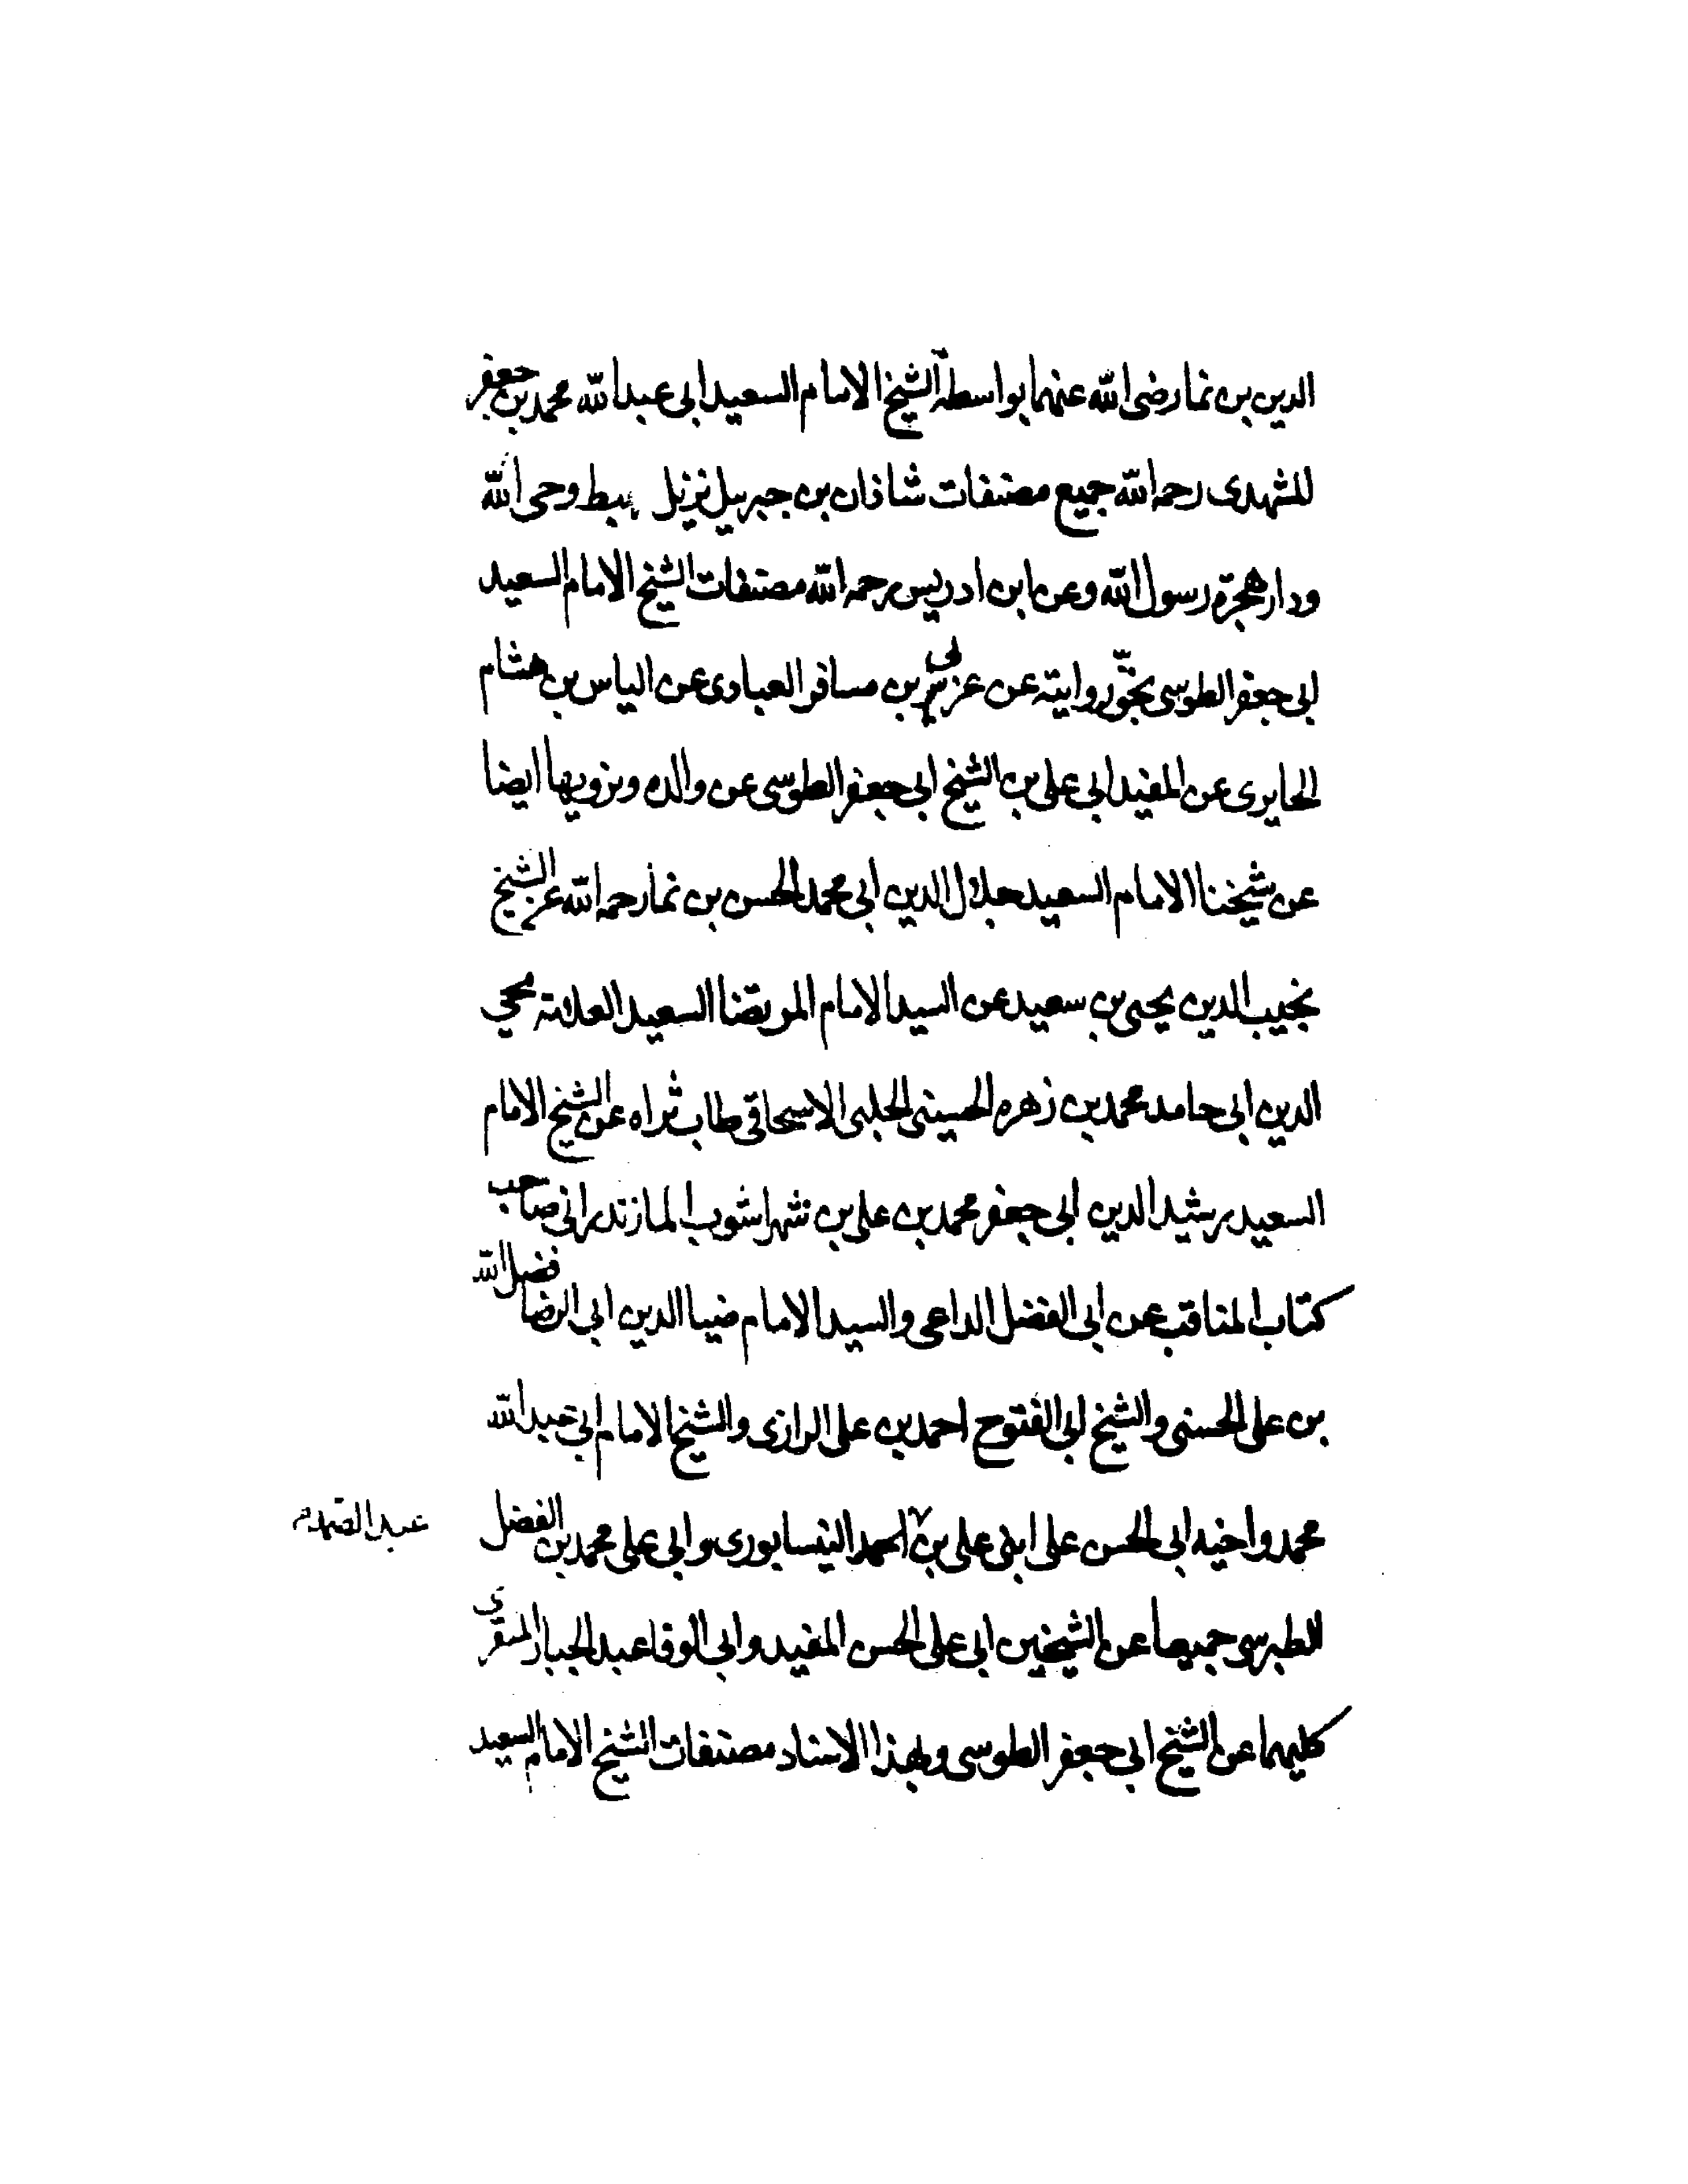 الدين بن نما رضى الله عنهما بواسطة الشيخ الامام السعيد ابى عبد الله محمد بن جعفر
المشهدى رحمه الله جميع مصنفات شاذان بن جبريل نزيل مهبط وحى الله
ودار هجرة رسول الله وعن ابن ادريس رحمه الله مصنفات الشيخ الامام السعيد
ابى جعفر الطوسى بحق روايته عن عربى بن مسافر العبادى عن الياس بن هشام
الحايرى عن المفيد ابى على بن الشيخ ابى جعفر الطوسى عن والده ونرويها ايضا
عن شيخنا الامام السعيد جلال الدين ابى محمد الحسن بن نما رحمه الله عن الشيخ
نجيب الدين يحيى بن سعيد عن السيد الامام المرتضا السعيد العلامة محيي
الدين ابى حامد محمد بن زهره الحسينى الحلبى الاسحاقى طاب ثراه عن الشيخ الامام
السعيد رشيد الدين ابى جعفر محمد بن على بن شهراشوب المازندرانى صاحب
كتاب المناقب عن ابى الفضل الداعى والسيد الامام ضيا الدين ابى الرضا فضل الله
بن على الحسنى والشيخ ابى الفتوح احمد بن على الرازى والشيخ الامام ابى عبد الله
محمد واخيه ابى الحسن على ابنى على بن النيسابورى وابى على محمد بن الفضل
عبد الصمد
الطبرسى جميعا عن الشيخين ابى على الحسن المفيد وابى الوفا عبد الجبار المقرى
كليهما عن الشيخ ابى جعفر الطوسى وبهذا الاسناد مصنفات الشيخ الامام السعيد